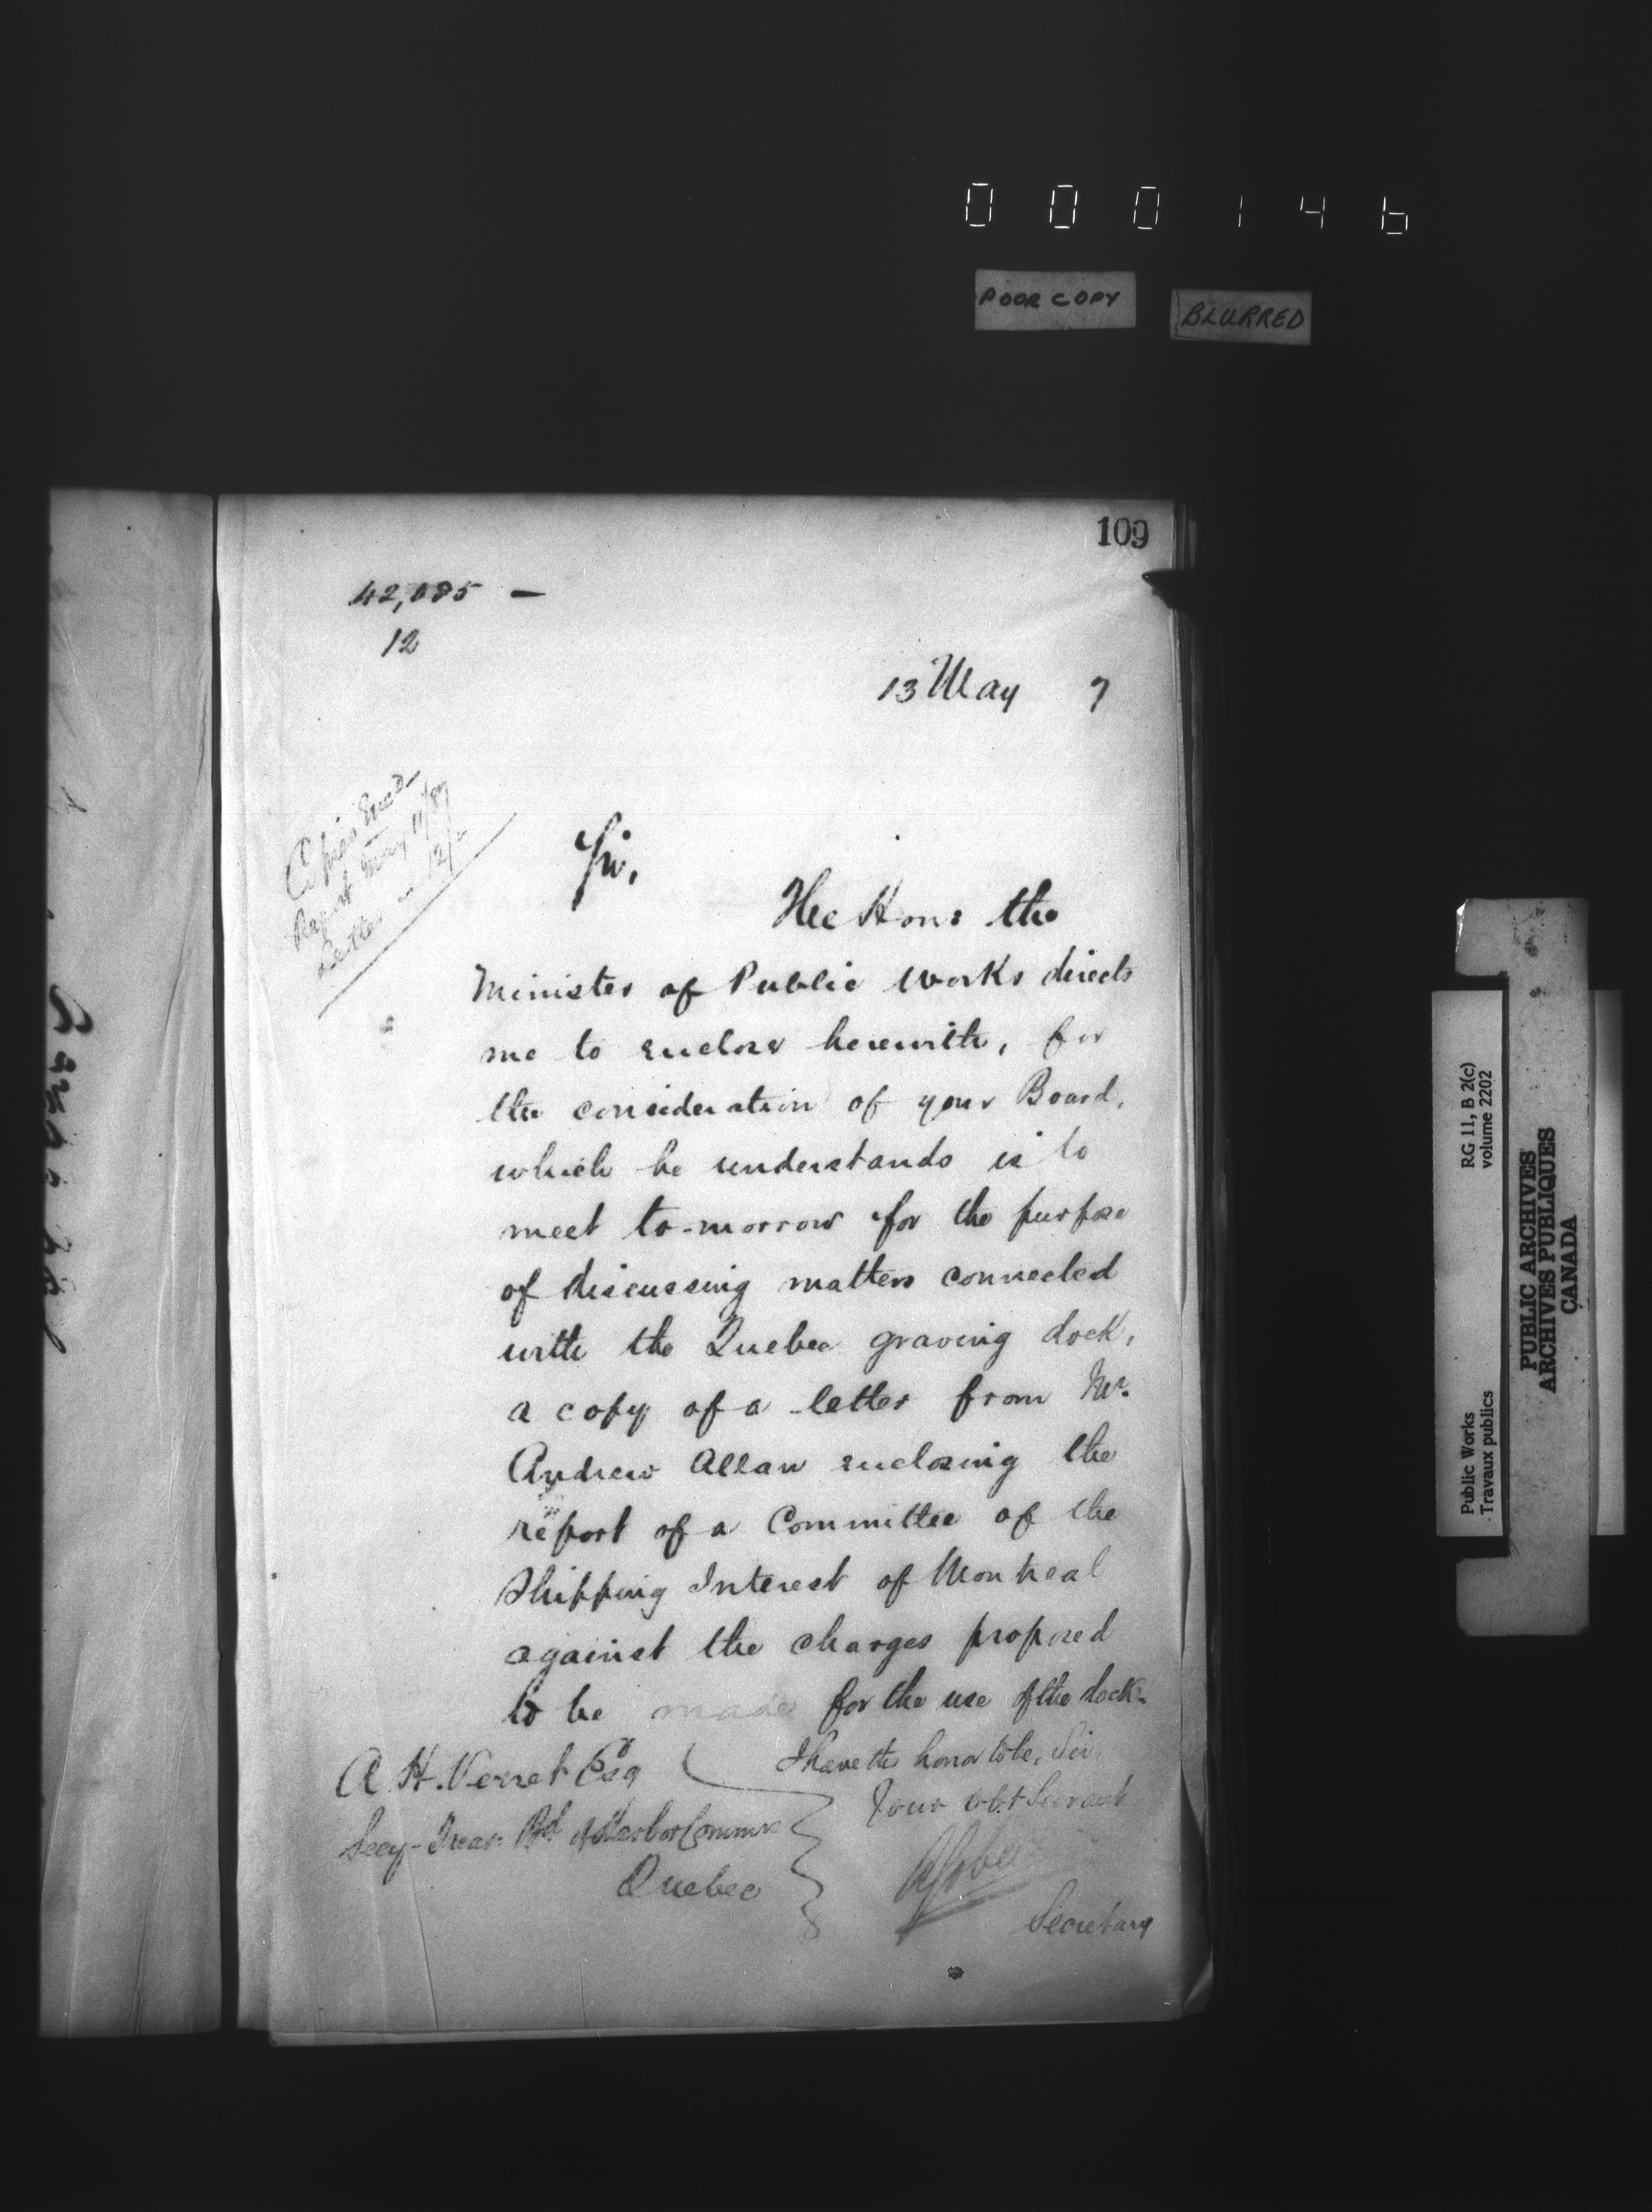 000146
POOR COPY
BLURRED
109
42,085 —
12
13 May 7
Copies Encd
Report May 11/87
Letter " 12/"
Sir,
The Hon: the
Minister of Public Works directs
me to enclose herewith, for
the consideration of your Board,
which he understands is to
meet to-morrow for the purpose
of discussing matters connected
with the Quebec graving dock,
a copy of a letter from Mr.
Andrew Allan enclosing the
report of a Committee of the
Shipping Interest of Montreal
against the charges proposed
to be made for the use of the dock.
I have the honor to be, Sir,
Your obt Servant
Secretary
A. H. Verret Esq
Secy-Treas Bd of Harbor Commrs
Quebec
Public Works
Travaux publics
RG 11, B 2(c)
volume 2202
PUBLIC ARCHIVES
ARCHIVES PUBLIQUES
CANADA